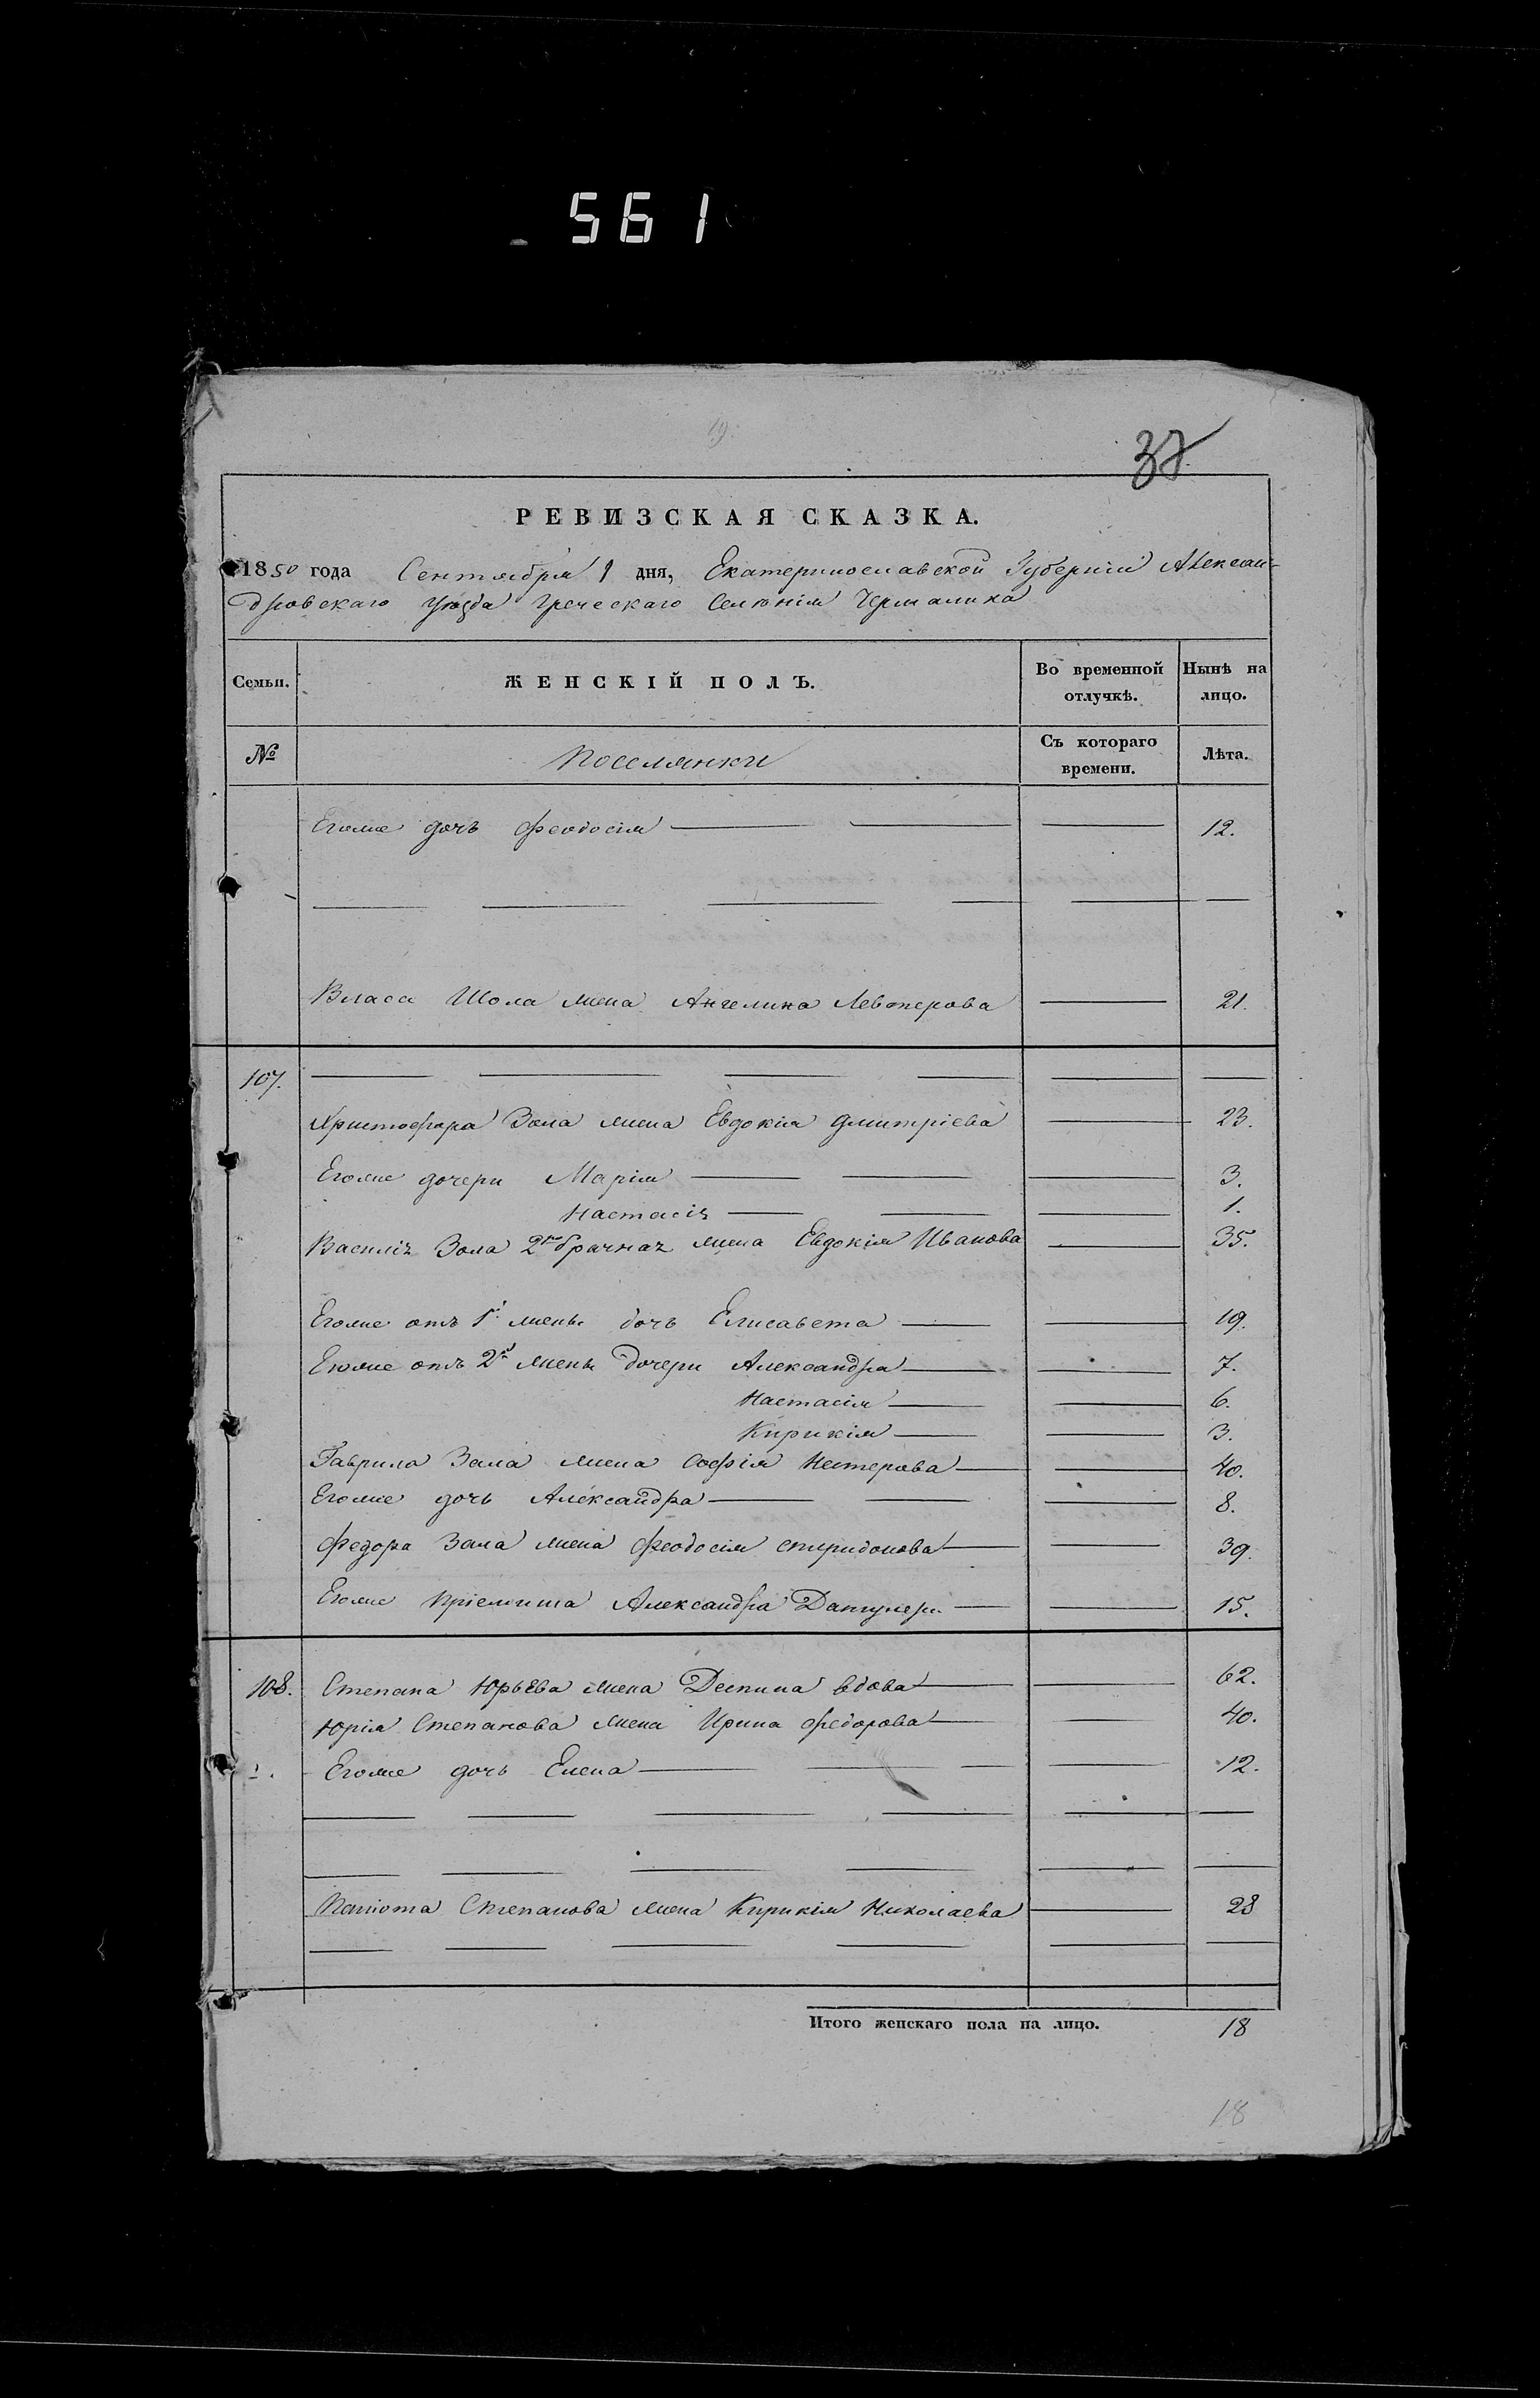 561
19.
37.
РЕВИЗСКАЯ СКАЗКА.
1850 года Сентября 1 дня, Екатеринославской Губернiи Алексан-
дровскаго Уѣзда Греческаго Селѣнiя Чермалика
Семьи. ЖЕНСКІЙ ПОЛЪ. Во временной отлучкѣ. Нынѣ на лицо.
№ Поселянки Съ котораго времени. Лѣта.
Егоже дочь Феодосiя 12.
Власа Шола жена Ангелина Левтерова 21.
107.
Христофора Зола жена Евдокiя Дмитрiева 23.
Егоже дочери Марiя 3.
Настасiя 1.
Василiя Зола 2но брачная жена Евдокiя Иванова 35.
Егоже отъ 1й жены дочь Елисавета 19.
Егоже отъ 2й жены дочери Александра 7.
Настасiя 6.
Кирикiя 3.
Гаврила Зола жена Софiя Нестерова 40.
Егоже дочь Александра 8.
Федора Зола жена Феодосiя Спиридонова 39.
Егоже прiемыша Александра 15.
108. Степана Юрьева жена Деспина вдова 62.
Юрiя Степанова жена Ирина Федорова 40.
Егоже дочь Елена 12.
Панiота Степанова жена Кирикiя Николаева 28
Итого женскаго пола на лицо. 18
18